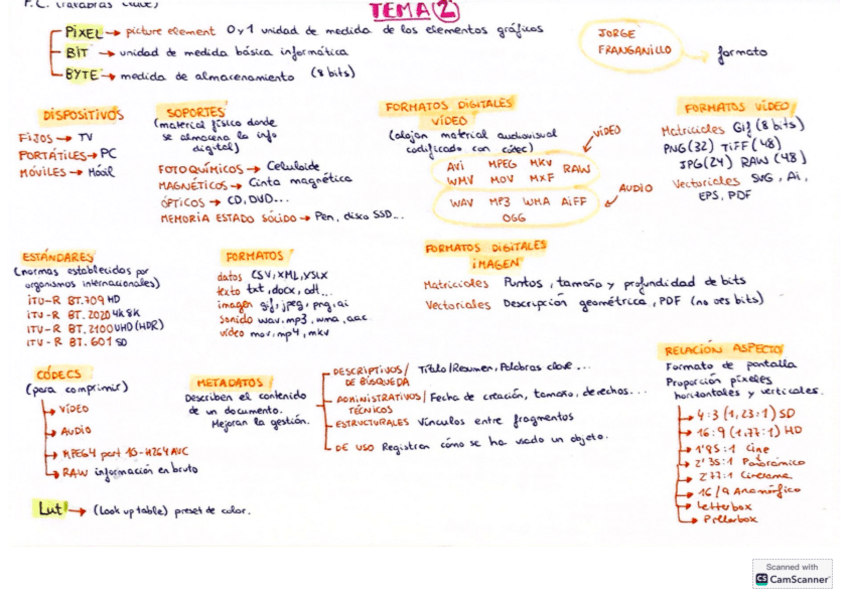 P.C. (Palabras clave)
TEMA 2
PIXEL → picture element 0 y 1 unidad de medida de los elementos gráficos
BIT → unidad de medida básica informática
BYTE → medida de almacenamiento (8 bits)
JORGE
FRANGANILLO → formato
DISPOSITIVOS
FIJOS → TV
PORTÁTILES → PC
MÓVILES → Móvil
SOPORTES
(material físico donde
se almacena la info
digital)
FOTOQUÍMICOS → Celuloide
MAGNÉTICOS → Cinta magnética
ÓPTICOS → CD, DVD...
MEMORIA ESTADO SÓLIDO → Pen, disco SSD...
FORMATOS DIGITALES
VÍDEO
(alojan material audiovisual
codificado con códec)
VIDEO
AVi MPEG MKV RAW
WMV MOV MXF
AUDIO
WAV MP3 WMA AiFF
OGG
FORMATOS VÍDEO
Matriciales Gif (8 bits)
PNG(32) TiFF (48)
JPG(24) RAW (48)
Vectoriales SVG, Ai,
EPS, PDF
ESTÁNDARES
(normas establecidas por
organismos internacionales)
iTU-R BT.709 HD
iTV-R BT.2020 4K 8K
ITV-R BT.2100 UHD (HDR)
ITV-R BT.601 SD
FORMATOS
datos CSV, XML, XSLX
texto txt, docx, odt...
imagen gif, jpeg, png, ai
Sonido wav, mp3, wma, aac
video mov, mp4, mkv
FORMATOS DIGITALES
iMAGEN
Matriciales Puntos, tamaño y profundidad de bits
Vectoriales Descripción geométrica, PDF (no ves bits)
CÓDECS
(para comprimir)
→ VÍDEO
→ AUDIO
→ MPEG4 part 10-H264 AVC
→ RAW información en bruto
METADATOS
Describen el contenido
de un documento.
Mejoran la gestión.
DESCRIPTIVOS/ Título/Resumen, Palabras clave...
DE BÚSQUEDA
ADMINISTRATIVOS/ Fecha de creación, tamaño, derechos...
TÉCNICOS
ESTRUCTURALES Vínculos entre fragmentos
DE USO Registran cómo se ha usado un objeto.
RELACIÓN ASPECTO
Formato de pantalla
Proporción píxeles
horizontales y verticales.
→ 4:3 (1,33:1) SD
→ 16:9 (1,77:1) HD
→ 1'85:1 Cine
→ 2'35:1 Panorámico
→ 2'77:1 Cinerama
→ 16/9 Anamórfico
→ Letterbox
→ Pillarbox
Lut → (Look up table) preset de color.
Scanned with
CS CamScanner